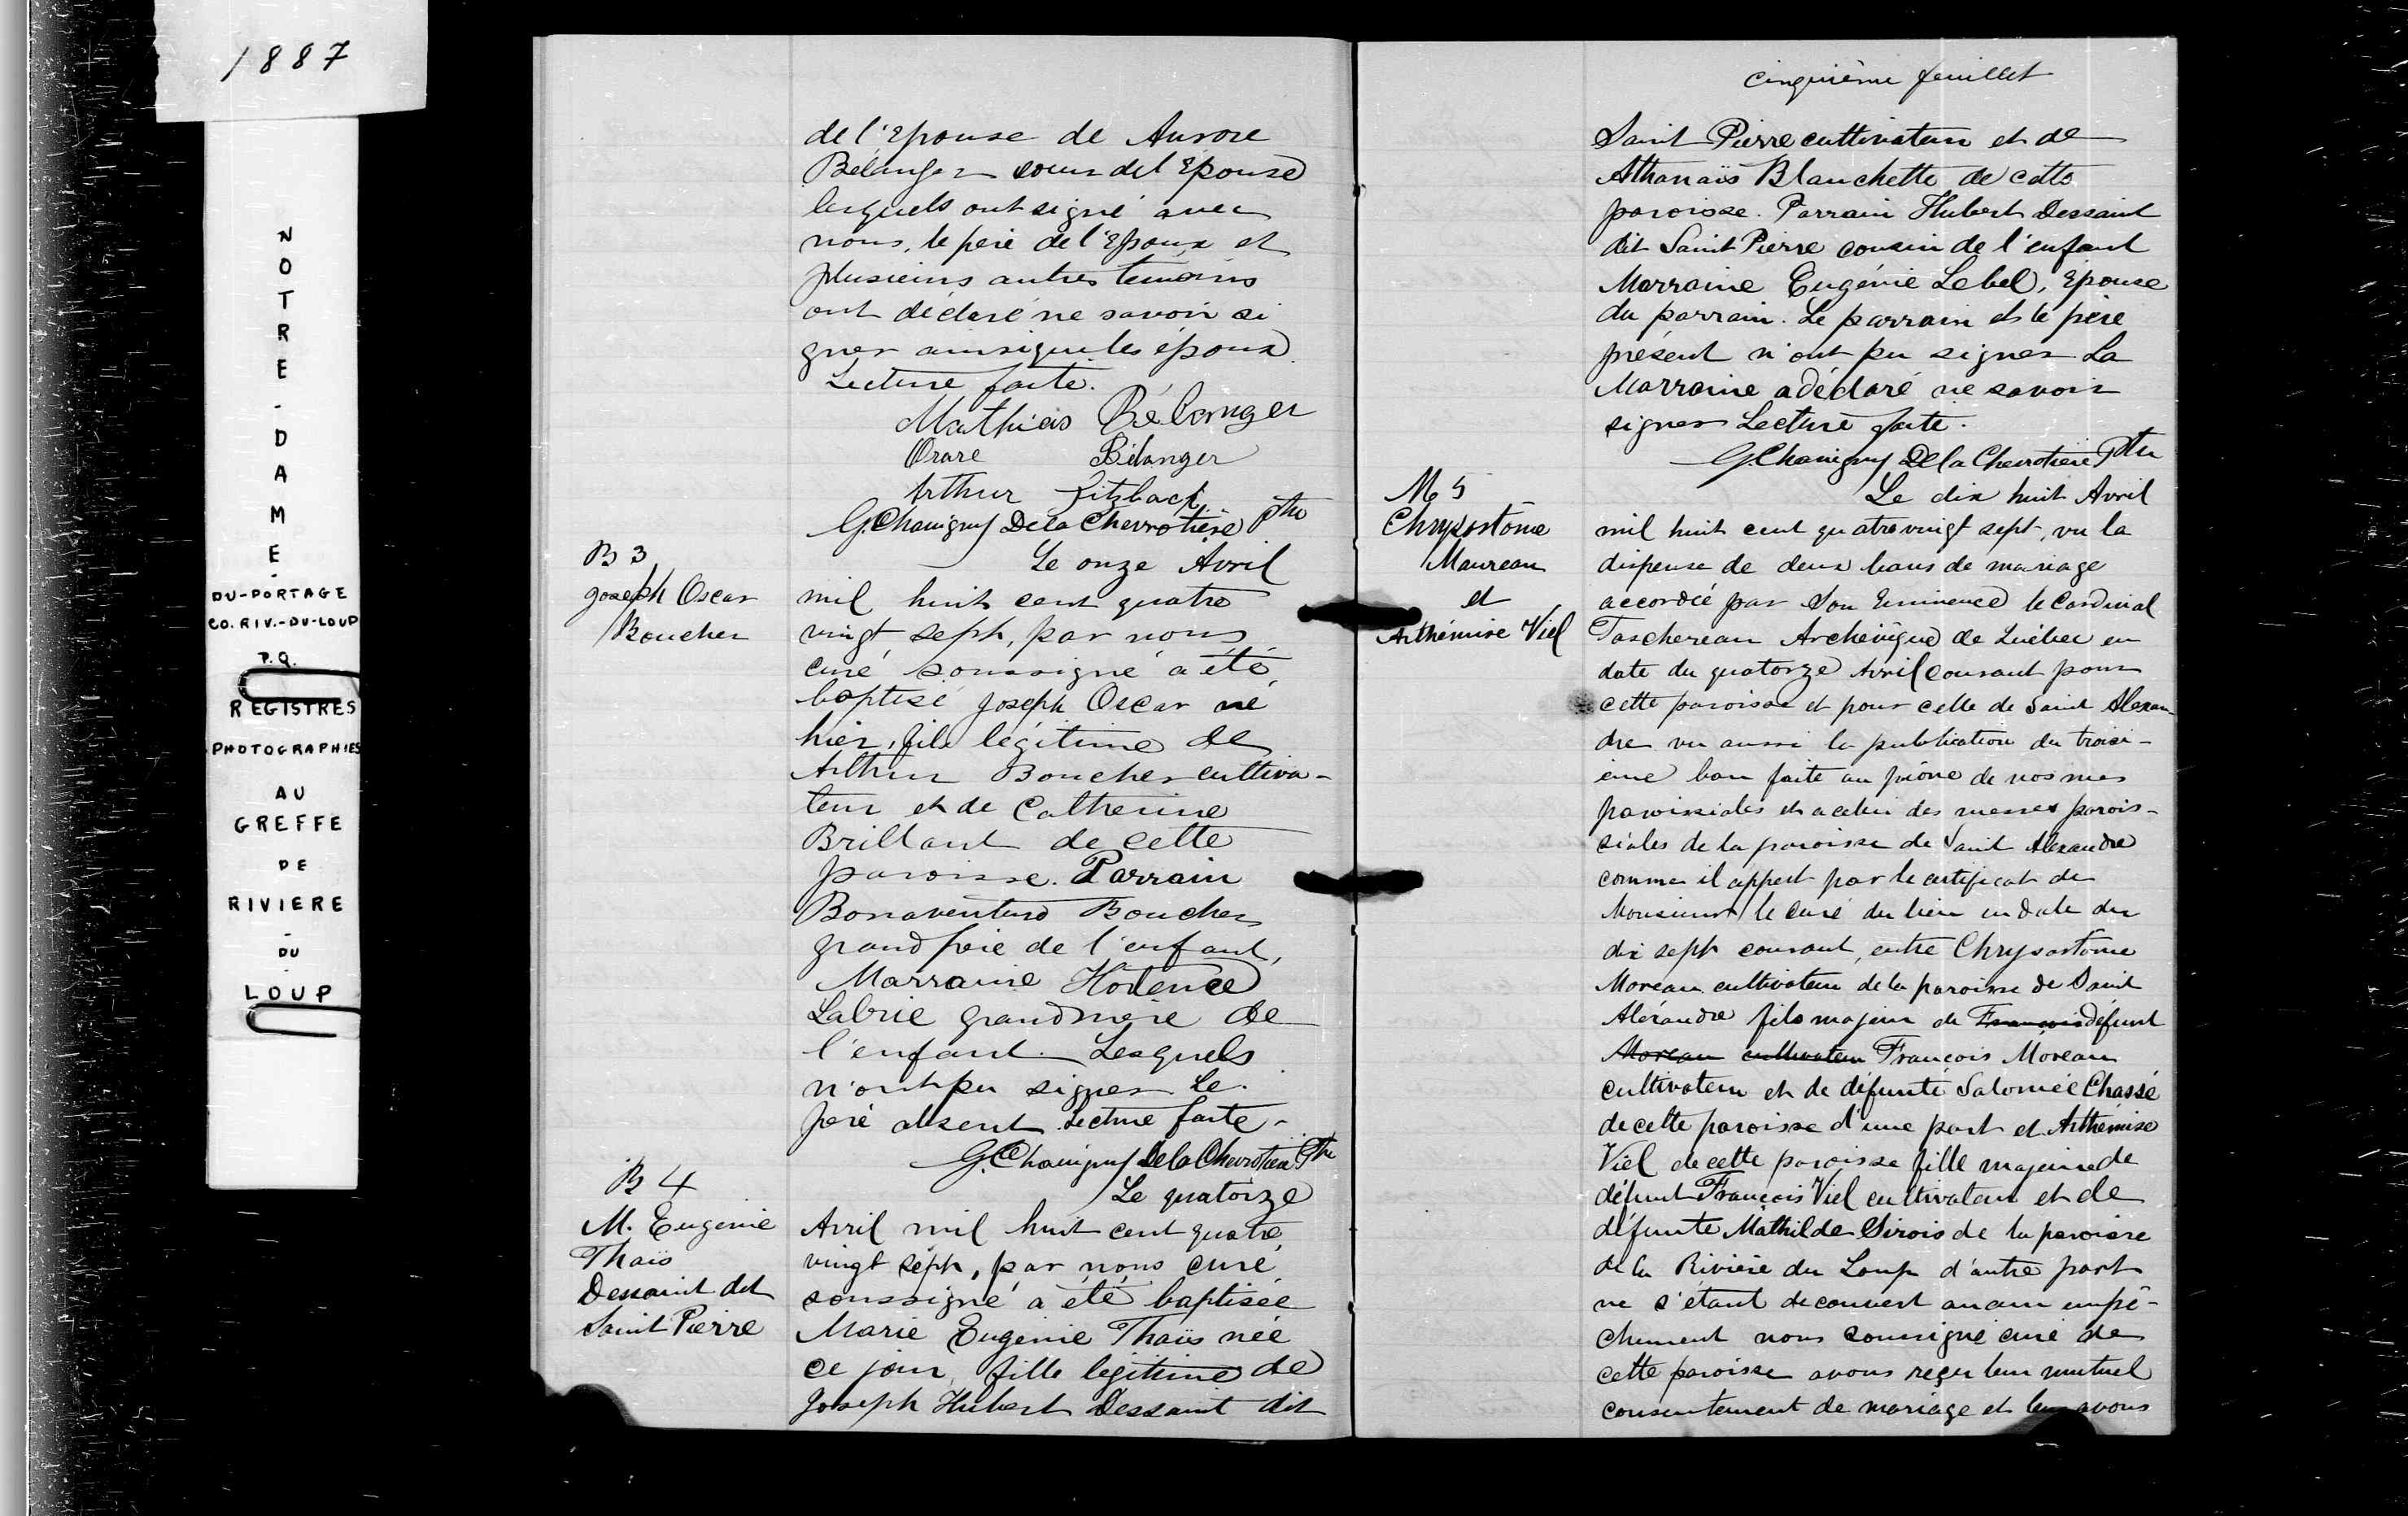 1887
NOTRE-DAME-
DU-PORTAGE
CO. RIV.-DU-LOUP
P.Q.
REGISTRES
PHOTOGRAPHIES
AU
GREFFE
DE
RIVIERE
-
DU
-
LOUP
de l'Epouse de Aurore
Bélanger soeur de l'Epouse
lesquels ont signé avec
nous, le père de l'Epoux et
plusieurs autres temoins
ont déclaré ne savoir si
gner ainsi que les époux.
Lecture faite.
Mathias Belanger
Orare Bélanger
Arthur Fitzback
G. Chavigny De la Chevrotière Ptre
B 3
Joseph Oscar
Boucher
Le onze Avril
mil huit cent quatre
vingt sept, par nous
curé soussigné a été
baptisé Joseph Oscar né
hier, fils légitime de
Arthur Boucher cultiva-
teur et de Catherine
Brillant de cette
paroisse. Parrain
Bonaventure Boucher
grand père de l'enfant,
Marraine Hortence
Labrie grandmère de
l'enfant. Lesquels
n'ont pu signer Le
père absent. Lecture faite.
G. Chavigny De la Chevrotière Ptre
B 4
M. Eugenie
Thaïs
Dessaint dit
Saint Pierre
Le quatorze
Avril mil huit cent quatre
vingt sept, par nous curé
soussigné a été baptisée
Marie Eugénie Thaïs née
ce jour, fille légitime de
Joseph Hubert Dessaint dit
cinquième feuillet
Saint Pierre cultivateur et de
Athanaïs Blanchette de cette
paroisse. Parrain Hubert Dessaint
dit Saint Pierre cousin de l'enfant
Marraine Eugénie Lebel, Epouse
du parrain. Le parrain et le père
présent n'ont pu signer La
Marraine a déclaré ne savoir
signer Lecture faite.
G. Chavigny De la Chevrotière Ptre
M 5
Chrysostôme
Maureau
et
Arthémise Viel
Le dix huit Avril
mil huit cent quatre vingt sept, vu la
dispense de deux bans de mariage
accordée par Son Eminence le Cardinal
Taschereau Archevêque de Québec en
date du quatorze Avril courant pour
cette paroisse et pour celle de Saint Alexan
dre vu aussi la publication du troisi-
ème ban faite au prône de nos mes
paroissiales et a celui des messes parois-
siales de la paroisse de Saint Alexandre
comme il appert par le certificat de
Monsieur le Curé du lieu en date du
dix sept courant, entre Chrysostôme
Moreau cultivateur de la paroisse de Saint
Alexandre fils majeur de François défunt
Moreau cultivateur François Moreau
cultivateur et de défunte Salomée Chassé
de cette paroisse d'une part et Arthémise
Viel de cette paroisse fille majeure de
défunt François Viel cultivateur et de
défunte Mathilde Sirois de la paroisse
de la Rivière du Loup d'autre part
ne s'étant decouvert aucun empê-
chement nous soussigné curé de
cette paroisse avons reçu leur mutuel
consentement de mariage et leur avons